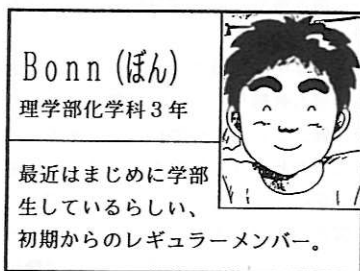 Bonn(ぼん)
理学部化学科3年
最近はまじめに学部
生しているらしい、
初期からのレギュラーメンバー。